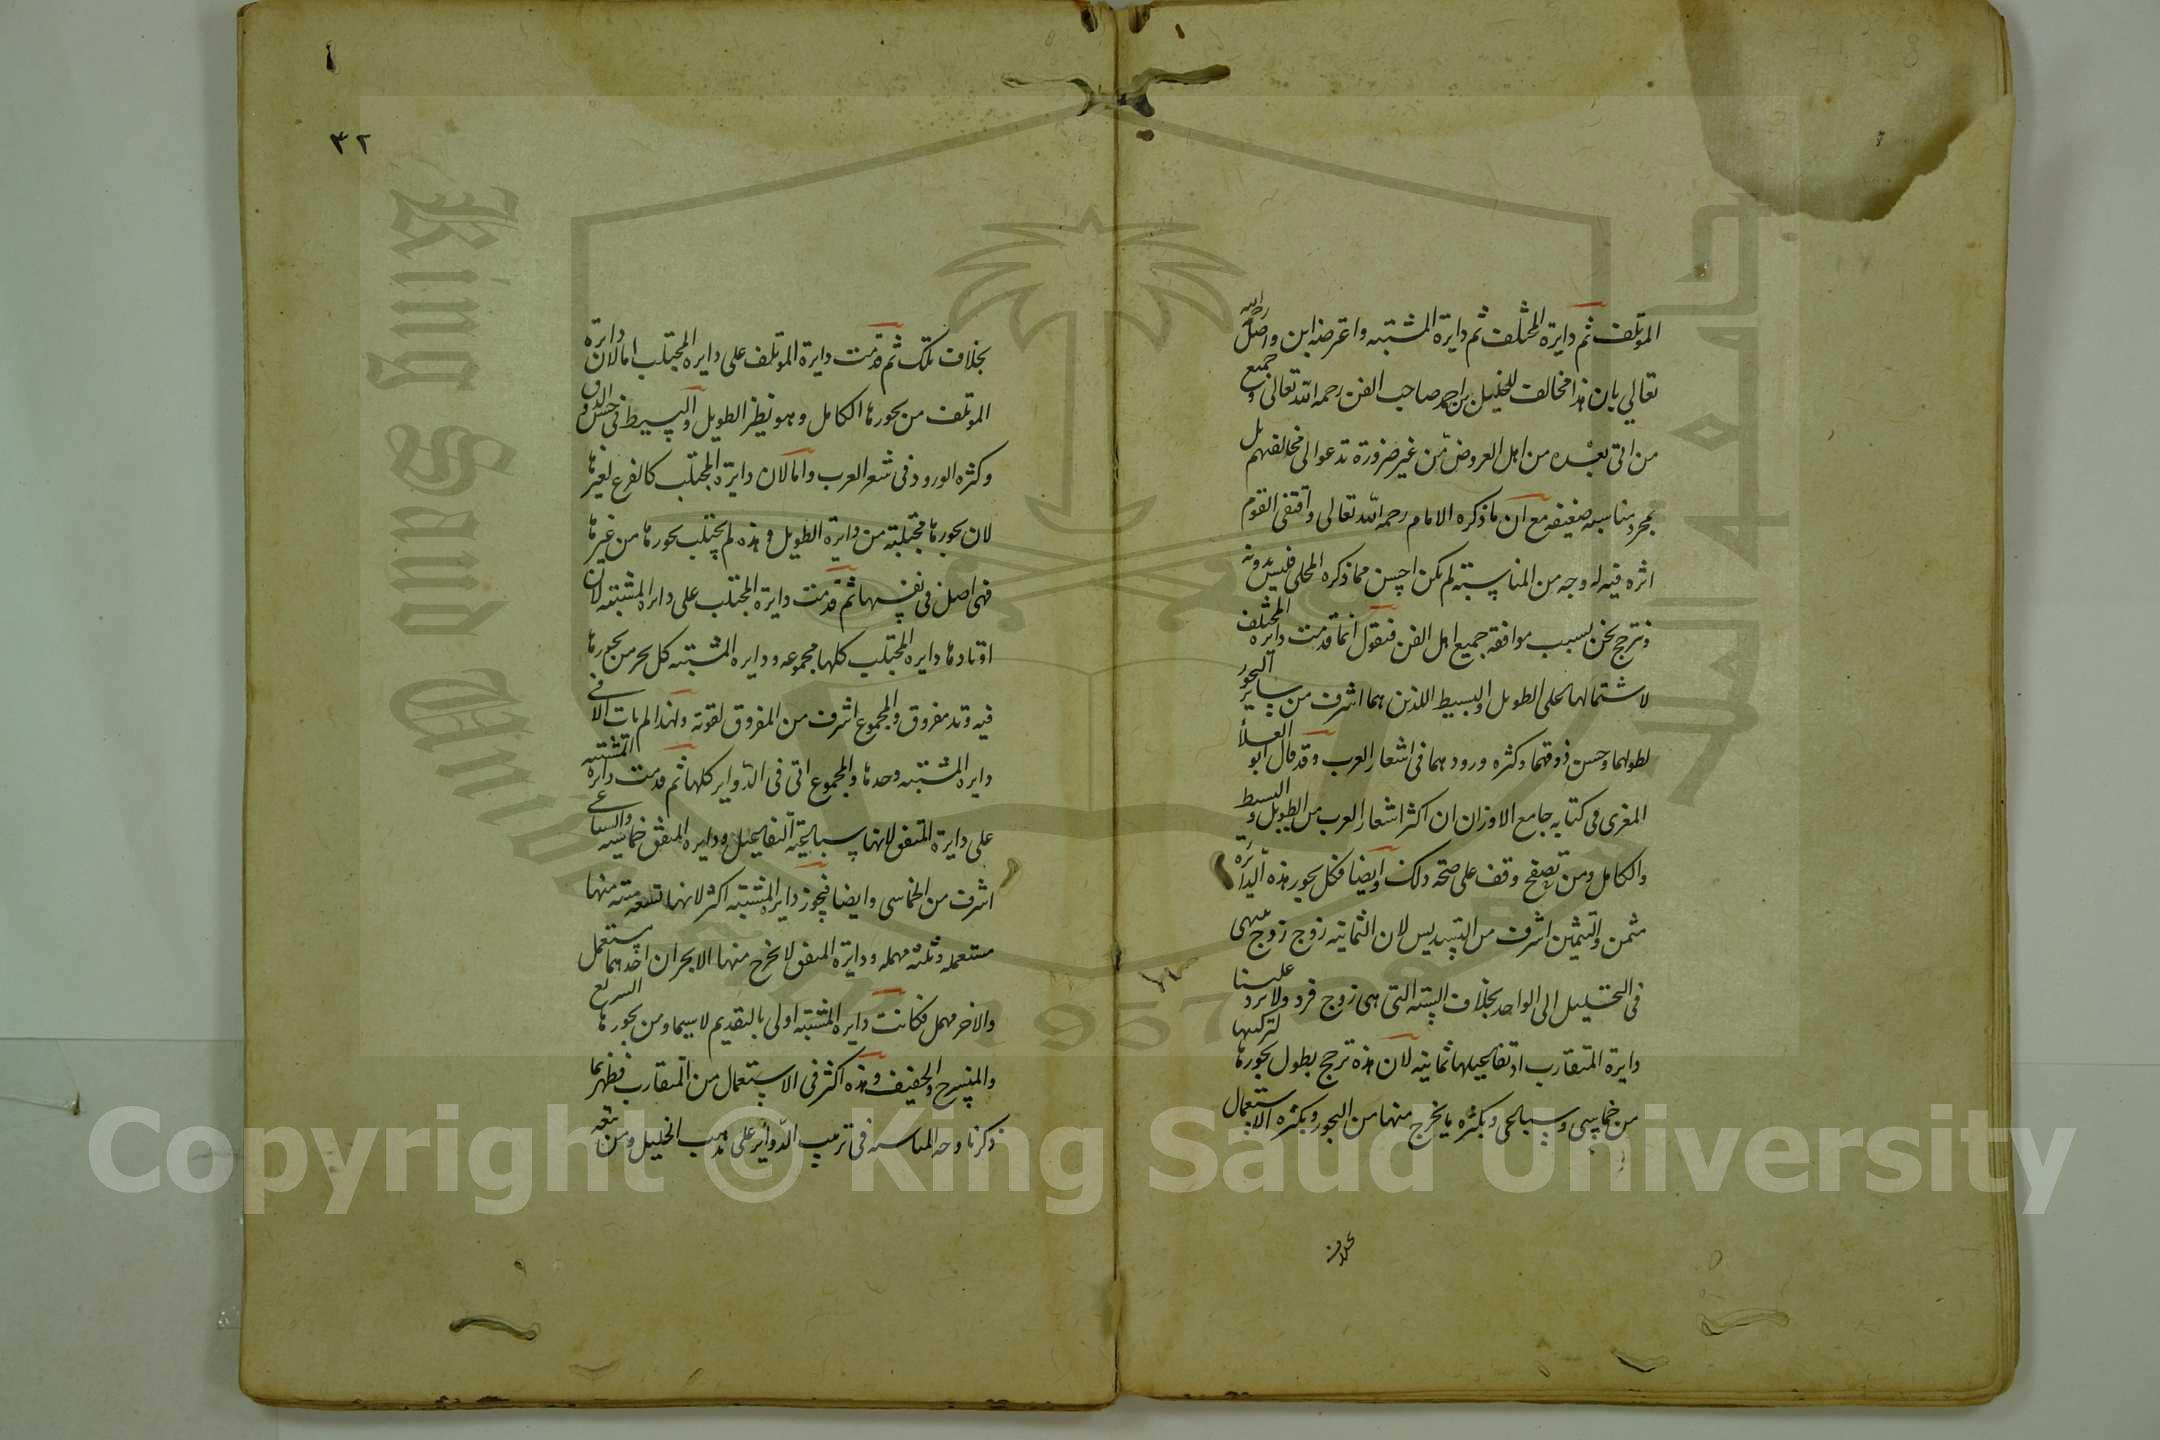 المؤتلف ثم دايرة المختلف ثم دايرة المشتبه واعترضه ابن واصل رحمه الله
تعالي بان هذا مخالف للخليل بن احمد صاحب الفن رحمه الله تعالى وجميع
من اتى بعده من اهل العروض من غير ضرورة تدعو الى مخالفتهم بل
بمجرد مناسبه ضعيفه مع ان ما ذكره الامام رحمه الله تعالى واقتفى القوم
اثره فيه له وجه من المناسبة لم يكن احسن مما ذكره المحلي فليس دونه
وترجح نحن بسبب موافقة جميع اهل الفن فنقول انما قدمت دايره المختلف
لاشتمالها على الطويل والبسيط اللذين هما اشرف من ساير البحور
لطولهما وحسن ذوقهما وكثره ورودهما في اشعار العرب وقد قال ابو العلأ
المغرى فى كتابه جامع الاوزان ان اكثر اشعار العرب من الطويل والبسيط
والكامل ومن تصفح وقف على صحة ذلك وايضا فكل بحور هذه الدايرة
مثمن والتثمين اشرف من التسديس لان الثمانيه زوج زوج ينتهى
فى التحليل الى الواحد بخلاف الستة التى هى زوج فرد ولا يرد علينا
دايرة المتقارب اذ تفاعيلها ثمانيه لان هذه ترجح بطول بحورها لتركبها
من خماسى وسباعى وبكثره ما يخرج منها من البحور وبكثره الاستعمال
بخلاف
٣٢
بخلاف تلك ثم قدمت دايرة الموتلف على دايره المجتلب اما لان دايرة
الموتلف من بحورها الكامل وهو نظير الطويل والبسيط فى حسن الذوق
وكثره الورود فى شعر العرب واما لان دايرة المجتلب كالفرع لغيرها
لان بحورها مجتلبة من دايرة الطويل وهذه لم يجتلب بحورها من غيرها
فهى اصل فى نفسها ثم قدمت دايرة المجتلب على دايره المشتبه لان
اوتادها دايره المجتلب كلها مجموعه ودايره المشتبه كل بحر من بحورها
فيه وتد مفروق والمجموع اشرف من المفروق لقوته ولهذا لم يات الا فى
دايره المشتبه وحدها والمجموع اتى فى الدواير كلها ثم قدمت دايرة المشتبه
على دايرة المتفق لانها سباعية التفاعيل ودايره المتفق خماسيه والسباعى
اشرف من الخماسى وايضا فبحور دايره المشتبه اكثر لانها تسعه ستة منها
مستعمله وثلثه مهمله ودايرة المتفق لا يخرج منها الا بحران احدهما مستعمل
والاخر مهمل فكانت دايره المشتبه اولى بالتقديم لاسيما ومن بحورها السريع
والمنسرح والخفيف وهذه اكثر فى الاستعمال من المتقارب فظهر بما
ذكرنا وجه المناسبه فى ترتيب الدواير على مذهب الخليل ومن تبعه
Copyright © King Saud University